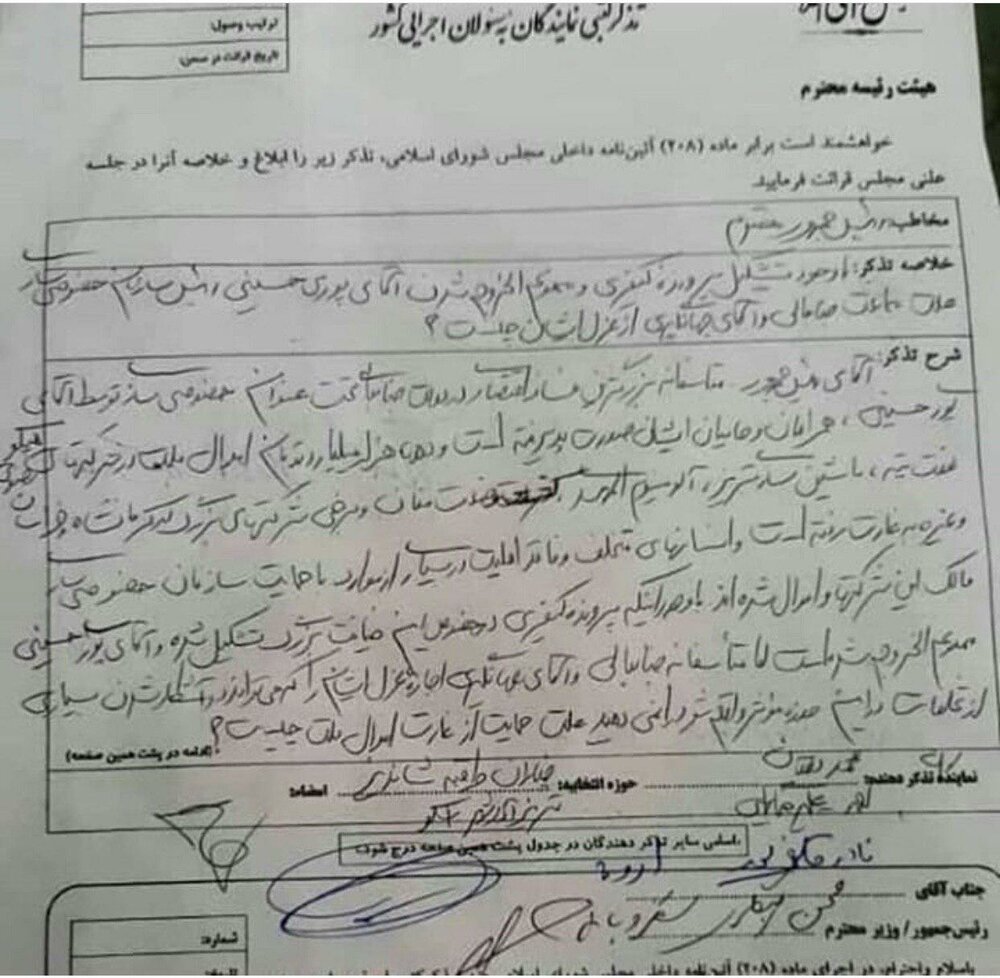 تذکر کتبی نمایندگان به مسئولان اجرایی کشور
ترتیب وصول:
تاریخ قرائت در صحن:
هیئت رئیسه محترم
خواهشمند است برابر ماده (۲۰۸) آئین‌نامه داخلی مجلس شورای اسلامی، تذکر زیر را ابلاغ و خلاصه آنرا در جلسه
علنی مجلس قرائت فرمایید.
مخاطب: رئیس جمهور محترم
خلاصه تذکر: با وجود تشکیل پرونده کیفری و ممنوع الخروج شدن آقای پوری حسینی رئیس سازمان خصوصی سازی
علت ممانعت جنابعالی و آقای جهانگیری از عزل ایشان چیست؟
شرح تذکر: آقای رئیس جمهور متاسفانه بزرگترین فساد اقتصادی در دولت جنابعالی تحت عنوان خصوصی سازی توسط آقای
پور حسینی، همراهان و حامیان ایشان صورت پذیرفته است و دهها هزار میلیارد تومان اموال ملت در شرکتهای
هفت تپه، ماشین سازی تبریز، آلومینیوم المهدی، کشت و صنعت مغان و برخی شرکتهای بزرگ دیگر کرمانشاه
و غیره به غارت رفته است و انسانهای متخلف و فاقد اهلیت در بسیاری از موارد با حمایت سازمان خصوصی سازی
مالک این شرکتها و اموال شده‌اند با وجود اینکه پرونده کیفری در خصوص این خیانت بزرگ تشکیل شده و آقای پور حسینی
ممنوع الخروج شده است اما متأسفانه جنابعالی و آقای جهانگیری اجازه عزل ایشان را
از تخلفات را نمی دهید علت حمایت از غارت اموال ملت چیست؟
(ادامه در پشت همین صفحه)
نماینده تذکر دهنده: محمد دهقان حوزه انتخابیه: چناران طرقبه شاندیز امضاء:
احمد علیرضا بیگی تبریز آذرشهر اسکو
اسامی سایر تذکر دهندگان در جدول پشت همین صفحه درج شود.
نادر قاضی پور ارومیه
جناب آقای
محسن بیگلری سقز و بانه
رئیس‌جمهور / وزیر محترم
شماره:
باسلام و احترام، در اجرای ماده (۲۰۸) آئین‌نامه داخلی مجلس شورای اسلامی